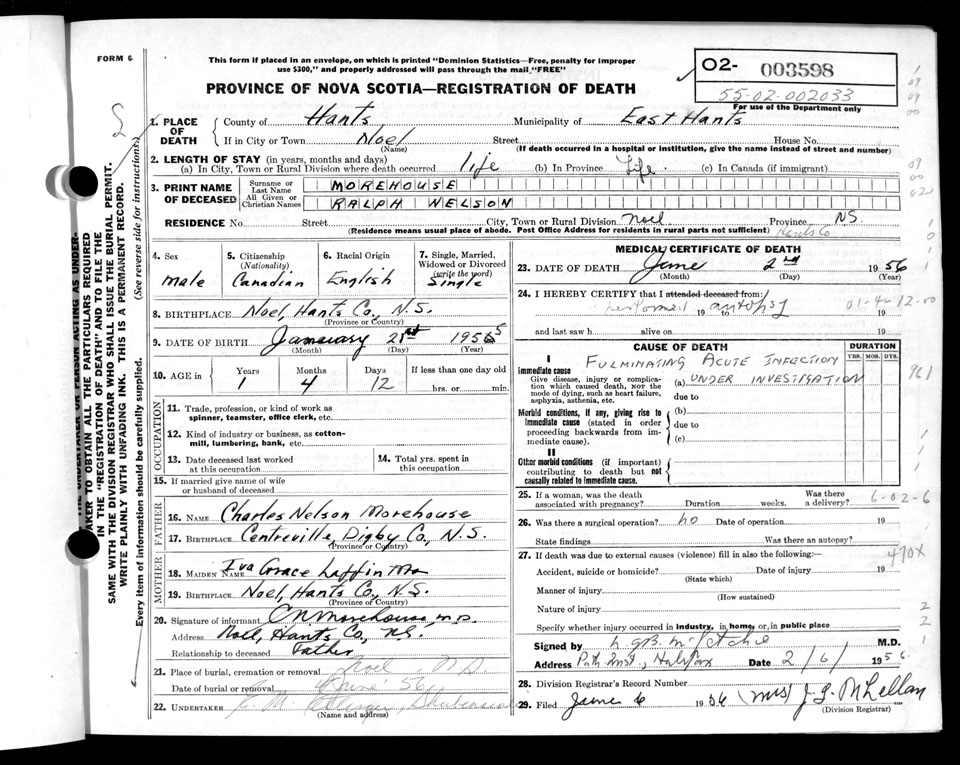 FORM 6
This form if placed in an envelope, on which is printed "Dominion Statistics—Free, penalty for improper
use $300," and properly addressed will pass through the mail "FREE"
PROVINCE OF NOVA SCOTIA—REGISTRATION OF DEATH
02- 003598
55-02-002033
For use of the Department only
1. PLACE OF DEATH
County of Hants Municipality of East Hants
If in City or Town Noel Street House No.
(Name) (If death occurred in a hospital or institution, give the name instead of street and number)
2. LENGTH OF STAY (in years, months and days)
(a) In City, Town or Rural Division where death occurred life (b) In Province Life (c) In Canada (if immigrant)
3. PRINT NAME OF DECEASED
Surname or Last Name MOREHOUSE
All Given or Christian Names RALPH NELSON
RESIDENCE No. Street City, Town or Rural Division Noel Province N.S.
(Residence means usual place of abode. Post Office Address for residents in rural parts not sufficient) Hants Co
4. Sex male
5. Citizenship (Nationality) Canadian
6. Racial Origin English
7. Single, Married, Widowed or Divorced (write the word) Single
8. BIRTHPLACE Noel, Hants Co., N.S.
(Province or Country)
9. DATE OF BIRTH January 21st 1955
(Month) (Day) (Year)
10. AGE in Years Months Days If less than one day old
1 4 12 hrs. or min.
OCCUPATION
11. Trade, profession, or kind of work as
spinner, teamster, office clerk, etc.
12. Kind of industry or business, as cotton-
mill, lumbering, bank, etc.
13. Date deceased last worked
at this occupation
14. Total yrs. spent in
this occupation
15. If married give name of wife
or husband of deceased
FATHER
16. NAME Charles Nelson Morehouse
17. BIRTHPLACE Centreville, Digby Co., N.S.
(Province or Country)
MOTHER
18. MAIDEN NAME Eva Grace
19. BIRTHPLACE Noel, Hants Co., N.S.
(Province or Country)
20. Signature of informant C N Morehouse, M.D.
Address Noel, Hants Co., N.S.
Relationship to deceased Father
21. Place of burial, cremation or removal Noel, N.S.
Date of burial or removal June 56
22. UNDERTAKER
(Name and address)
MEDICAL CERTIFICATE OF DEATH
23. DATE OF DEATH June 2nd 1956
(Month) (Day) (Year)
24. I HEREBY CERTIFY that I attended deceased from:
performed 19 to autopsy 19
01-4-12-00
and last saw h alive on 19
CAUSE OF DEATH DURATION
YRS. MOS. DYS.
I
Immediate cause
Give disease, injury or complica-
tion which caused death, NOT the
mode of dying, such as heart failure,
asphyxia, asthenia, etc.
FULMINATING ACUTE INFECTION
(a) UNDER INVESTIGATION
961
due to
Morbid conditions, if any, giving rise to
immediate cause (stated in order
proceeding backwards from im-
mediate cause).
(b)
due to
(c)
II
Other morbid conditions (if important)
contributing to death but not
causally related to immediate cause.
25. If a woman, was the death Was there
associated with pregnancy? Duration weeks. a delivery?
6-02-6
26. Was there a surgical operation? no Date of operation 19
State findings Was there an autopsy?
27. If death was due to external causes (violence) fill in also the following:
470X
Accident, suicide or homicide? Date of injury 19
(State which)
Manner of injury
(How sustained)
Nature of injury
Specify whether injury occurred in industry, in home, or, in public place
Signed by M.D.
Address Path Inst, Halifax Date 2/6/1956
28. Division Registrar's Record Number
29. Filed June 6 1956 (Mrs) J. G. McLellan
(Division Registrar)
AKER TO OBTAIN ALL THE PARTICULARS REQUIRED
IN THE "REGISTRATION OF DEATH" AND TO FILE THE
SAME WITH THE DIVISION REGISTRAR WHO SHALL ISSUE THE BURIAL PERMIT.
WRITE PLAINLY WITH UNFADING INK. THIS IS A PERMANENT RECORD.
Every item of information should be carefully supplied. (See reverse side for instructions)